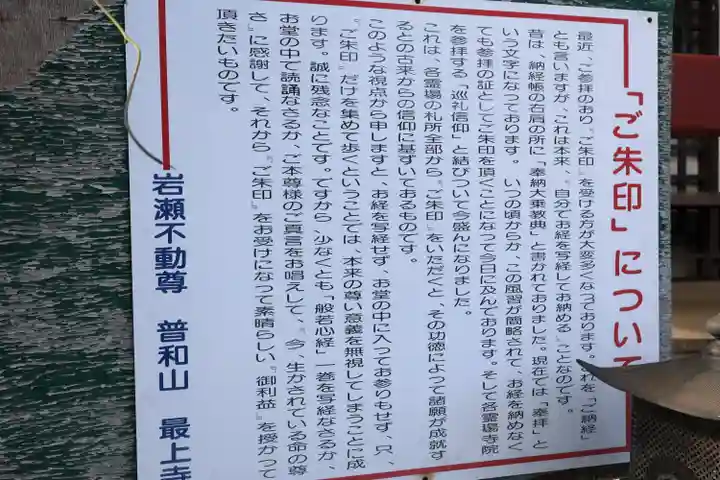 「ご朱印」について
最近、ご参拝のあり『ご朱印』を受ける方が大変多くなっております。これを「ご納経」
とも言いますが、これは本来、『自分でお経を写経してお納める』ことなのです。
昔は、納経帳の右肩の所に「奉納大乗教典」と書かれておりました。現在では「奉拝」と
いう文字になっております。いつの頃からか、この風習が簡略されて、お経を納めなく
ても参拝の証としてご朱印を頂くことになって今日に及んでおります。そして各霊場寺院
を参拝する「巡礼信仰」と結びついて今盛んになりました。
これは、各霊場の札所全部から『ご朱印』をいただくと、その功徳によって諸願が成就す
るとの古来からの信仰に基ずいておるものです。
このような視点から申しますと、お経を写経せず、お堂の中に入ってお参りもせず、只、
『ご朱印』だけを集めて歩くということでは、本来の尊い意義を無視してしまうことに成
ります。誠に残念なことです。ですから、少なくとも「般若心経」一巻を写経なさるか、
お堂の中で読誦なさるか、ご本尊様のご真言をお唱えして、『今、生かされている命の尊
さ』に感謝して、それから『ご朱印』をお受けになって素晴らしい『御利益』を授かって
頂きたいものです。
岩瀬不動尊 普和山 最上寺